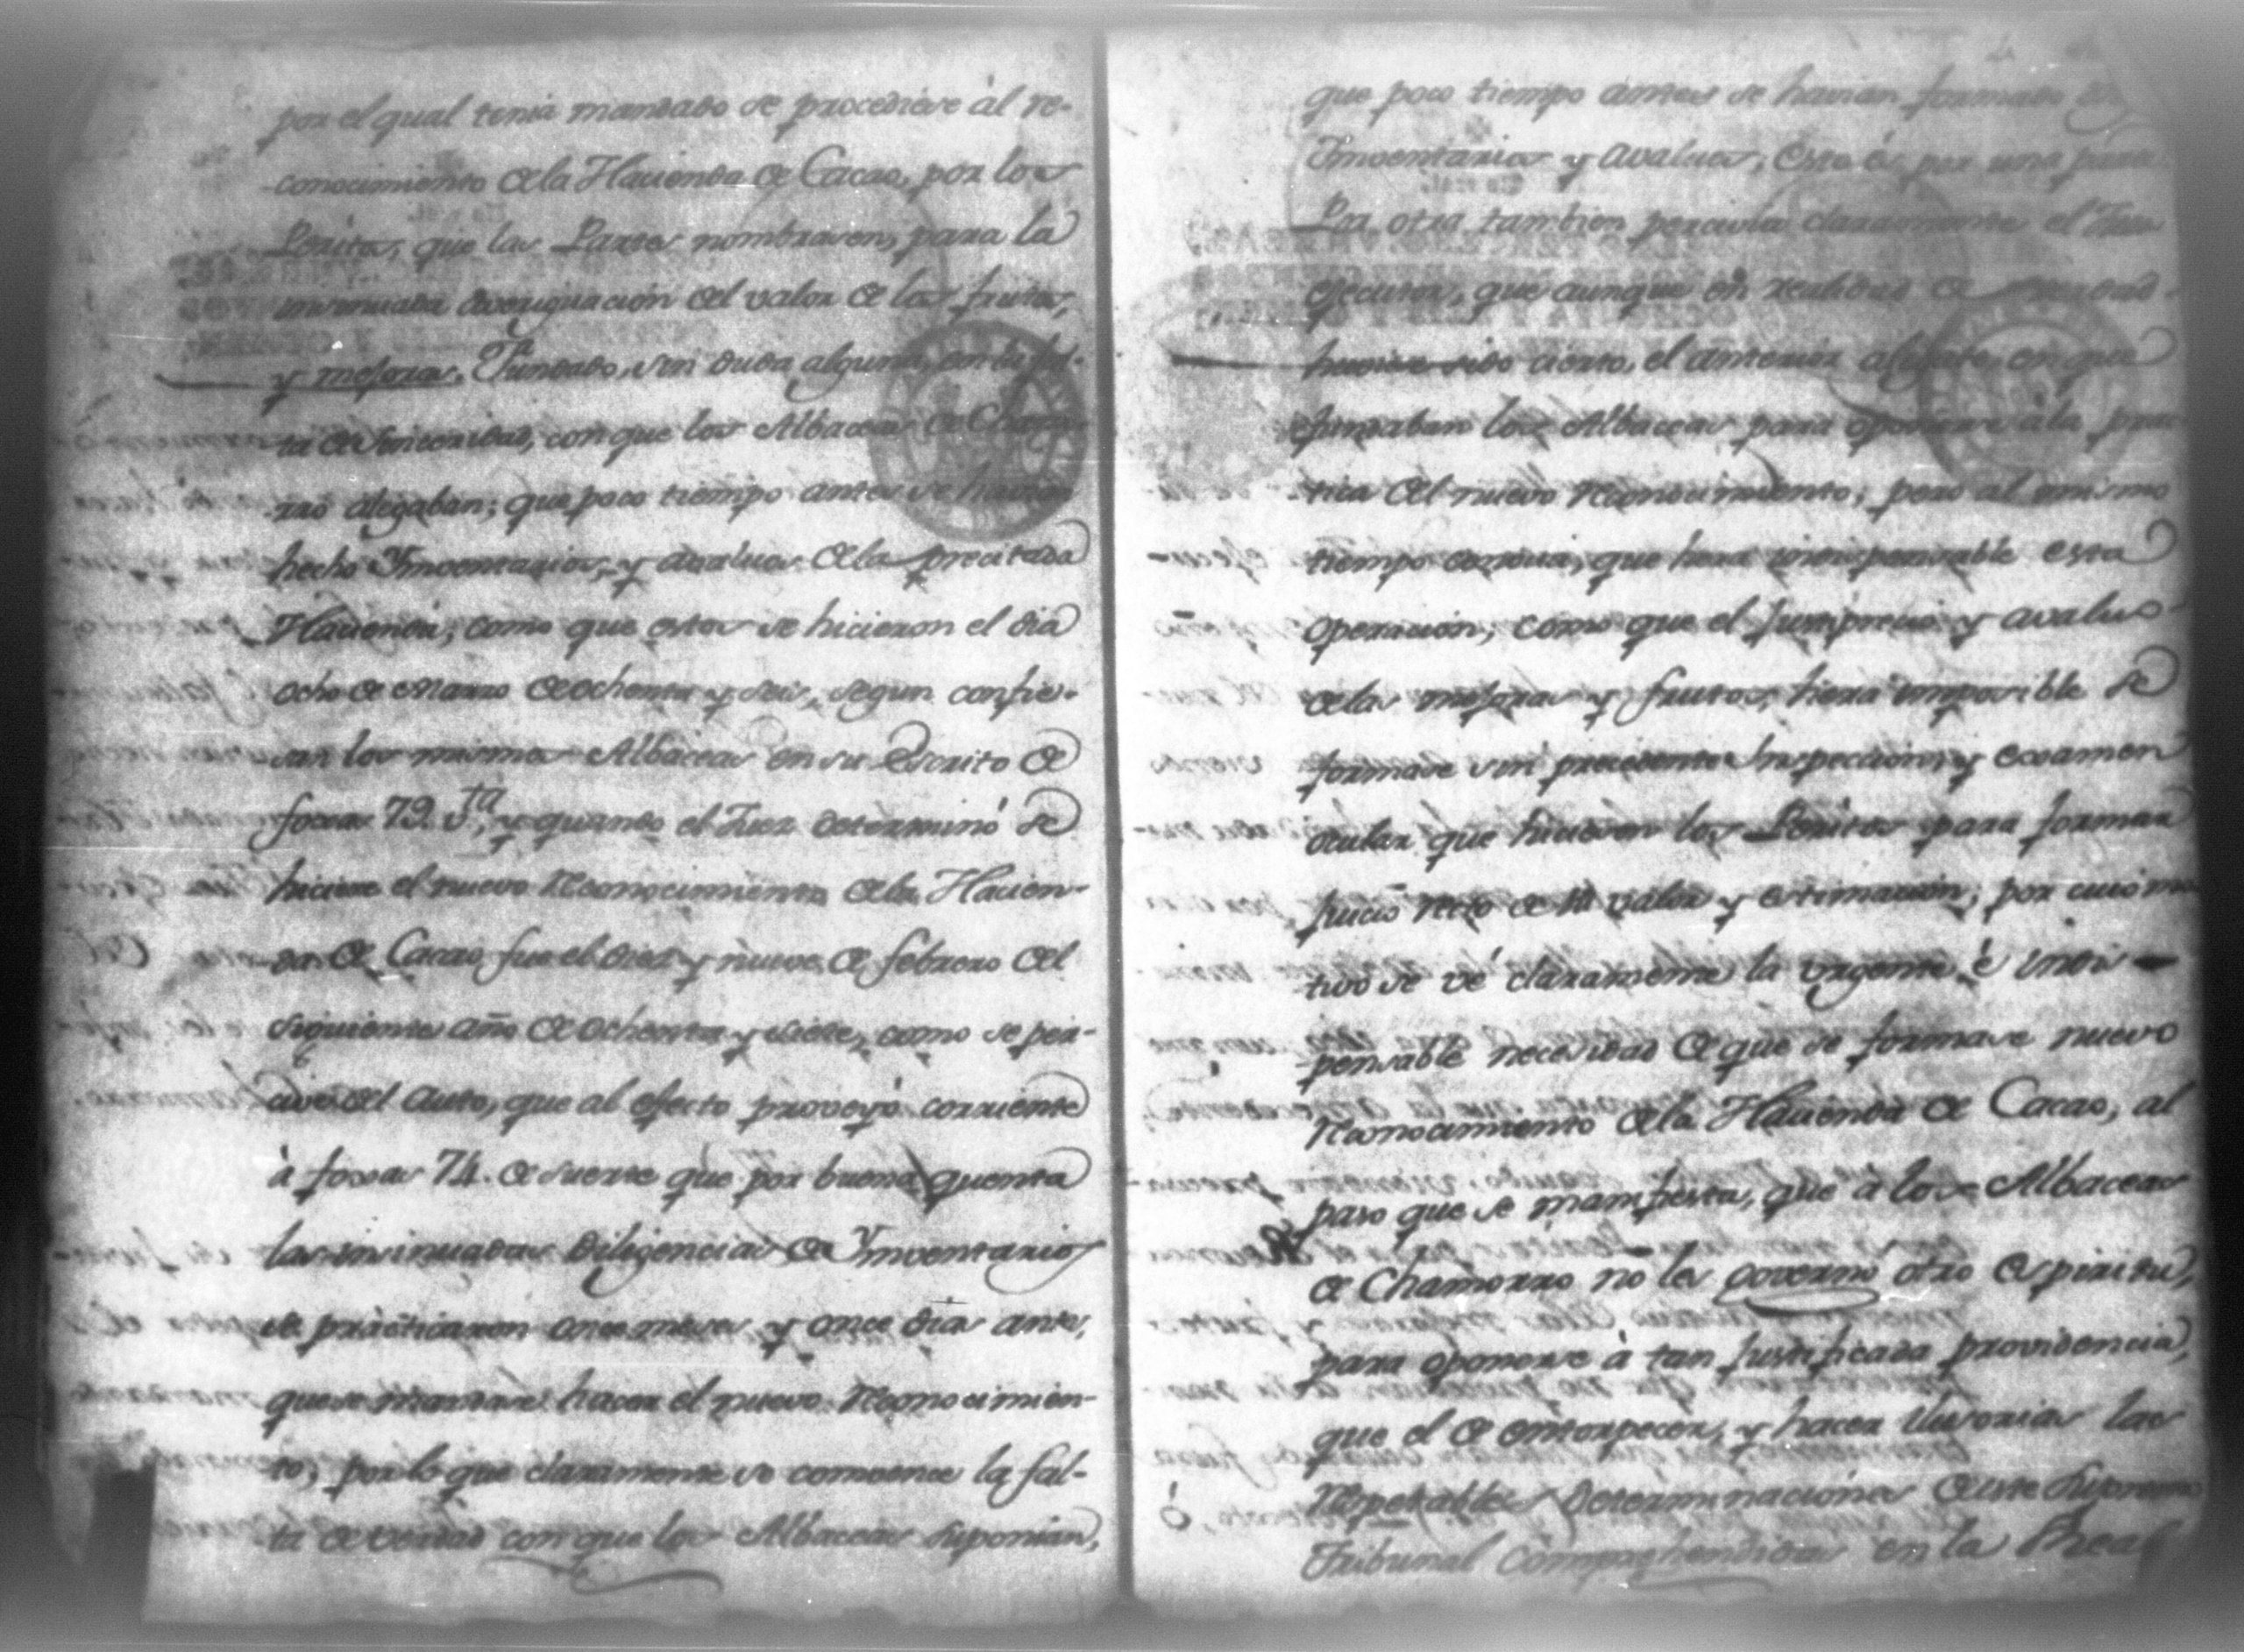 por el qual tenia mandado se procediese àl re-
conocimiento de la Hacienda de Cacao, por los
Peritos, que las Partes nombrasen, para la
insinuada averiguacion del valor de los frutos,
y mejoras. Fundado, sin duda alguna, en la fal-
ta de sinceridad, con que los Albaceas de Chamo-
rro alegaban; que poco tiempo antes se havian
hecho Ymventarios, y avaluos de la precitada
Hacienda, como que estos se hicieron el dia
ocho de Marzo de ochenta y seis, segun confie-
san los mismos Albaceas en su Escrito de
foxas 79. vta, y quando el Juez determinó se
hiciese el nuevo reconocimiento de la Hacien-
da de Cacao fue el diez y nueve de febrero del
siguiente año de ochenta y siete, como se per-
cive del Auto, que al efecto proveyó corriente
à foxas 74. de suerte que por buena quenta
las insinuadas Diligencias de Ymventarios
se practicaron once meses y once dias antes,
que se mandase hacer el nuevo reconocimien-
to, por lo que claramente se comvence la fal-
ta de verdad con que los Albaceas suponian,
que poco tiempo antes se havian formado
Ymventarios y avaluos, esto és por una parte
Por otra tambien percivia claramente el Juez
executor, que aunque en realidad de verdad
huviese sido cierto, el anterior alegato en que
fundaban los Albaceas para oponerse à la prac-
tica del nuevo reconocimiento; pero al mismo
tiempo conocia, que hera indispensable esta
operacion, como que el Justiprecio y avaluo
de las mejoras y frutos, hera imposible se
formase sin precedente Inspeccion, y examen
ocular que hiciesen los Peritos para formar
juicio recto de su valor y estimacion; por cuio mo-
tivo se vé claramente la urgente é indis-
pensable necesidad de que se formase nuevo
reconocimiento de la Hacienda de Cacao, al
paso que se manifiesta, que à los Albaceas
de Chamorro no les governó otro espiritu,
para oponerse à tan justificada providencia,
que el de entorpecer, y hacer ilusorias las
respetables Determinaciones de este Supremo
Tribunal comprehendidas en la Real